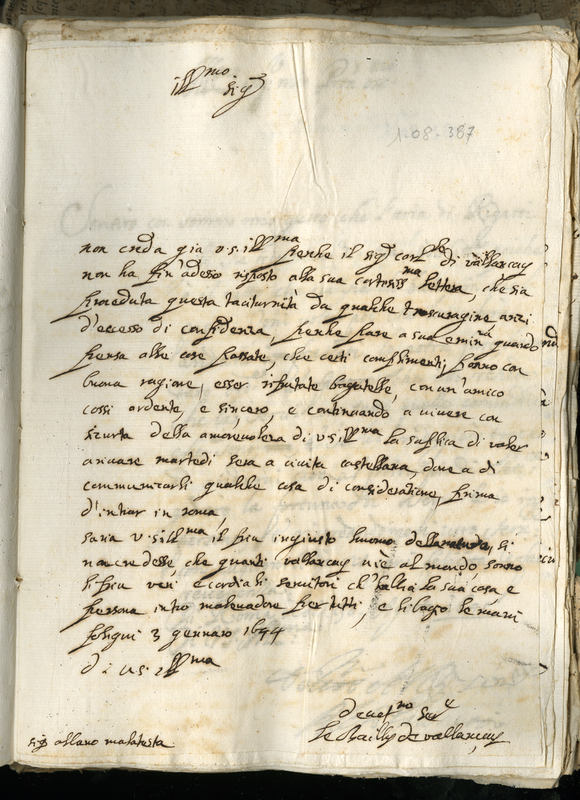 ill^mo
sig^r
1-08-387
non creda gia v.s.ill^ma perche il sig^r card^le di vallancay
non ha fin adesso risposto alla sua cortesiss^ma lettera, che sia
proceduta questa taciturnità da qualche trascuragine anzi
d'eccesso di confidenza, perche pare a sua emin^za quando
pensa alle cose passate, che certi complimenti ponno con
buona ragione, esser riputate bagatelle, con un' amico
cossi ardente, e sincero, e continuando a vivere con
sicurta della amorevolezza di v s ill^ma la supplica di voler
arivare martedi sera a civita castellana, dove a di
communicarli qualche cosa di consideratione, prima
d'intrar in roma
saria v s ill^ma il piu ingiusto huomo del mondo, si
non credesse che quanti vallancay vi è al mondo, sonno
li piu veri e cordiali servitori ch' habbia la sua casa, e
persona intro malvadore per tutti, e li bagio le mani
foligni 3 gennaro 1644
di v.s. ill^ma
devet^mo ser^re
le Bailly de vallancay
sig^r allano malatesta